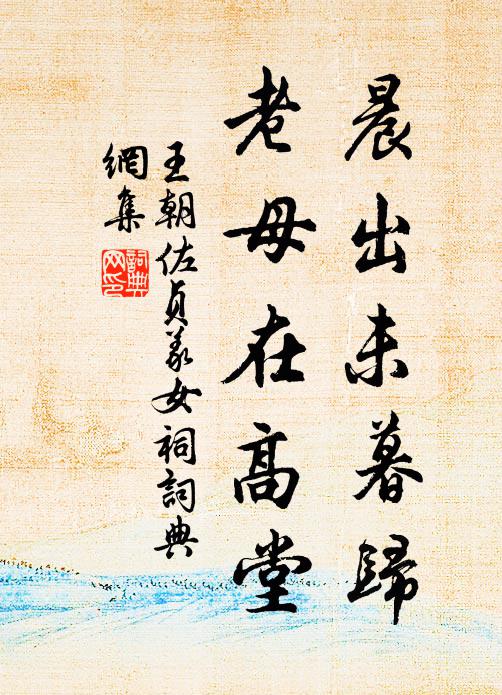 晨出未暮歸
老母在高堂
王朝佐貞義女祠詞典
網集
詞典網印